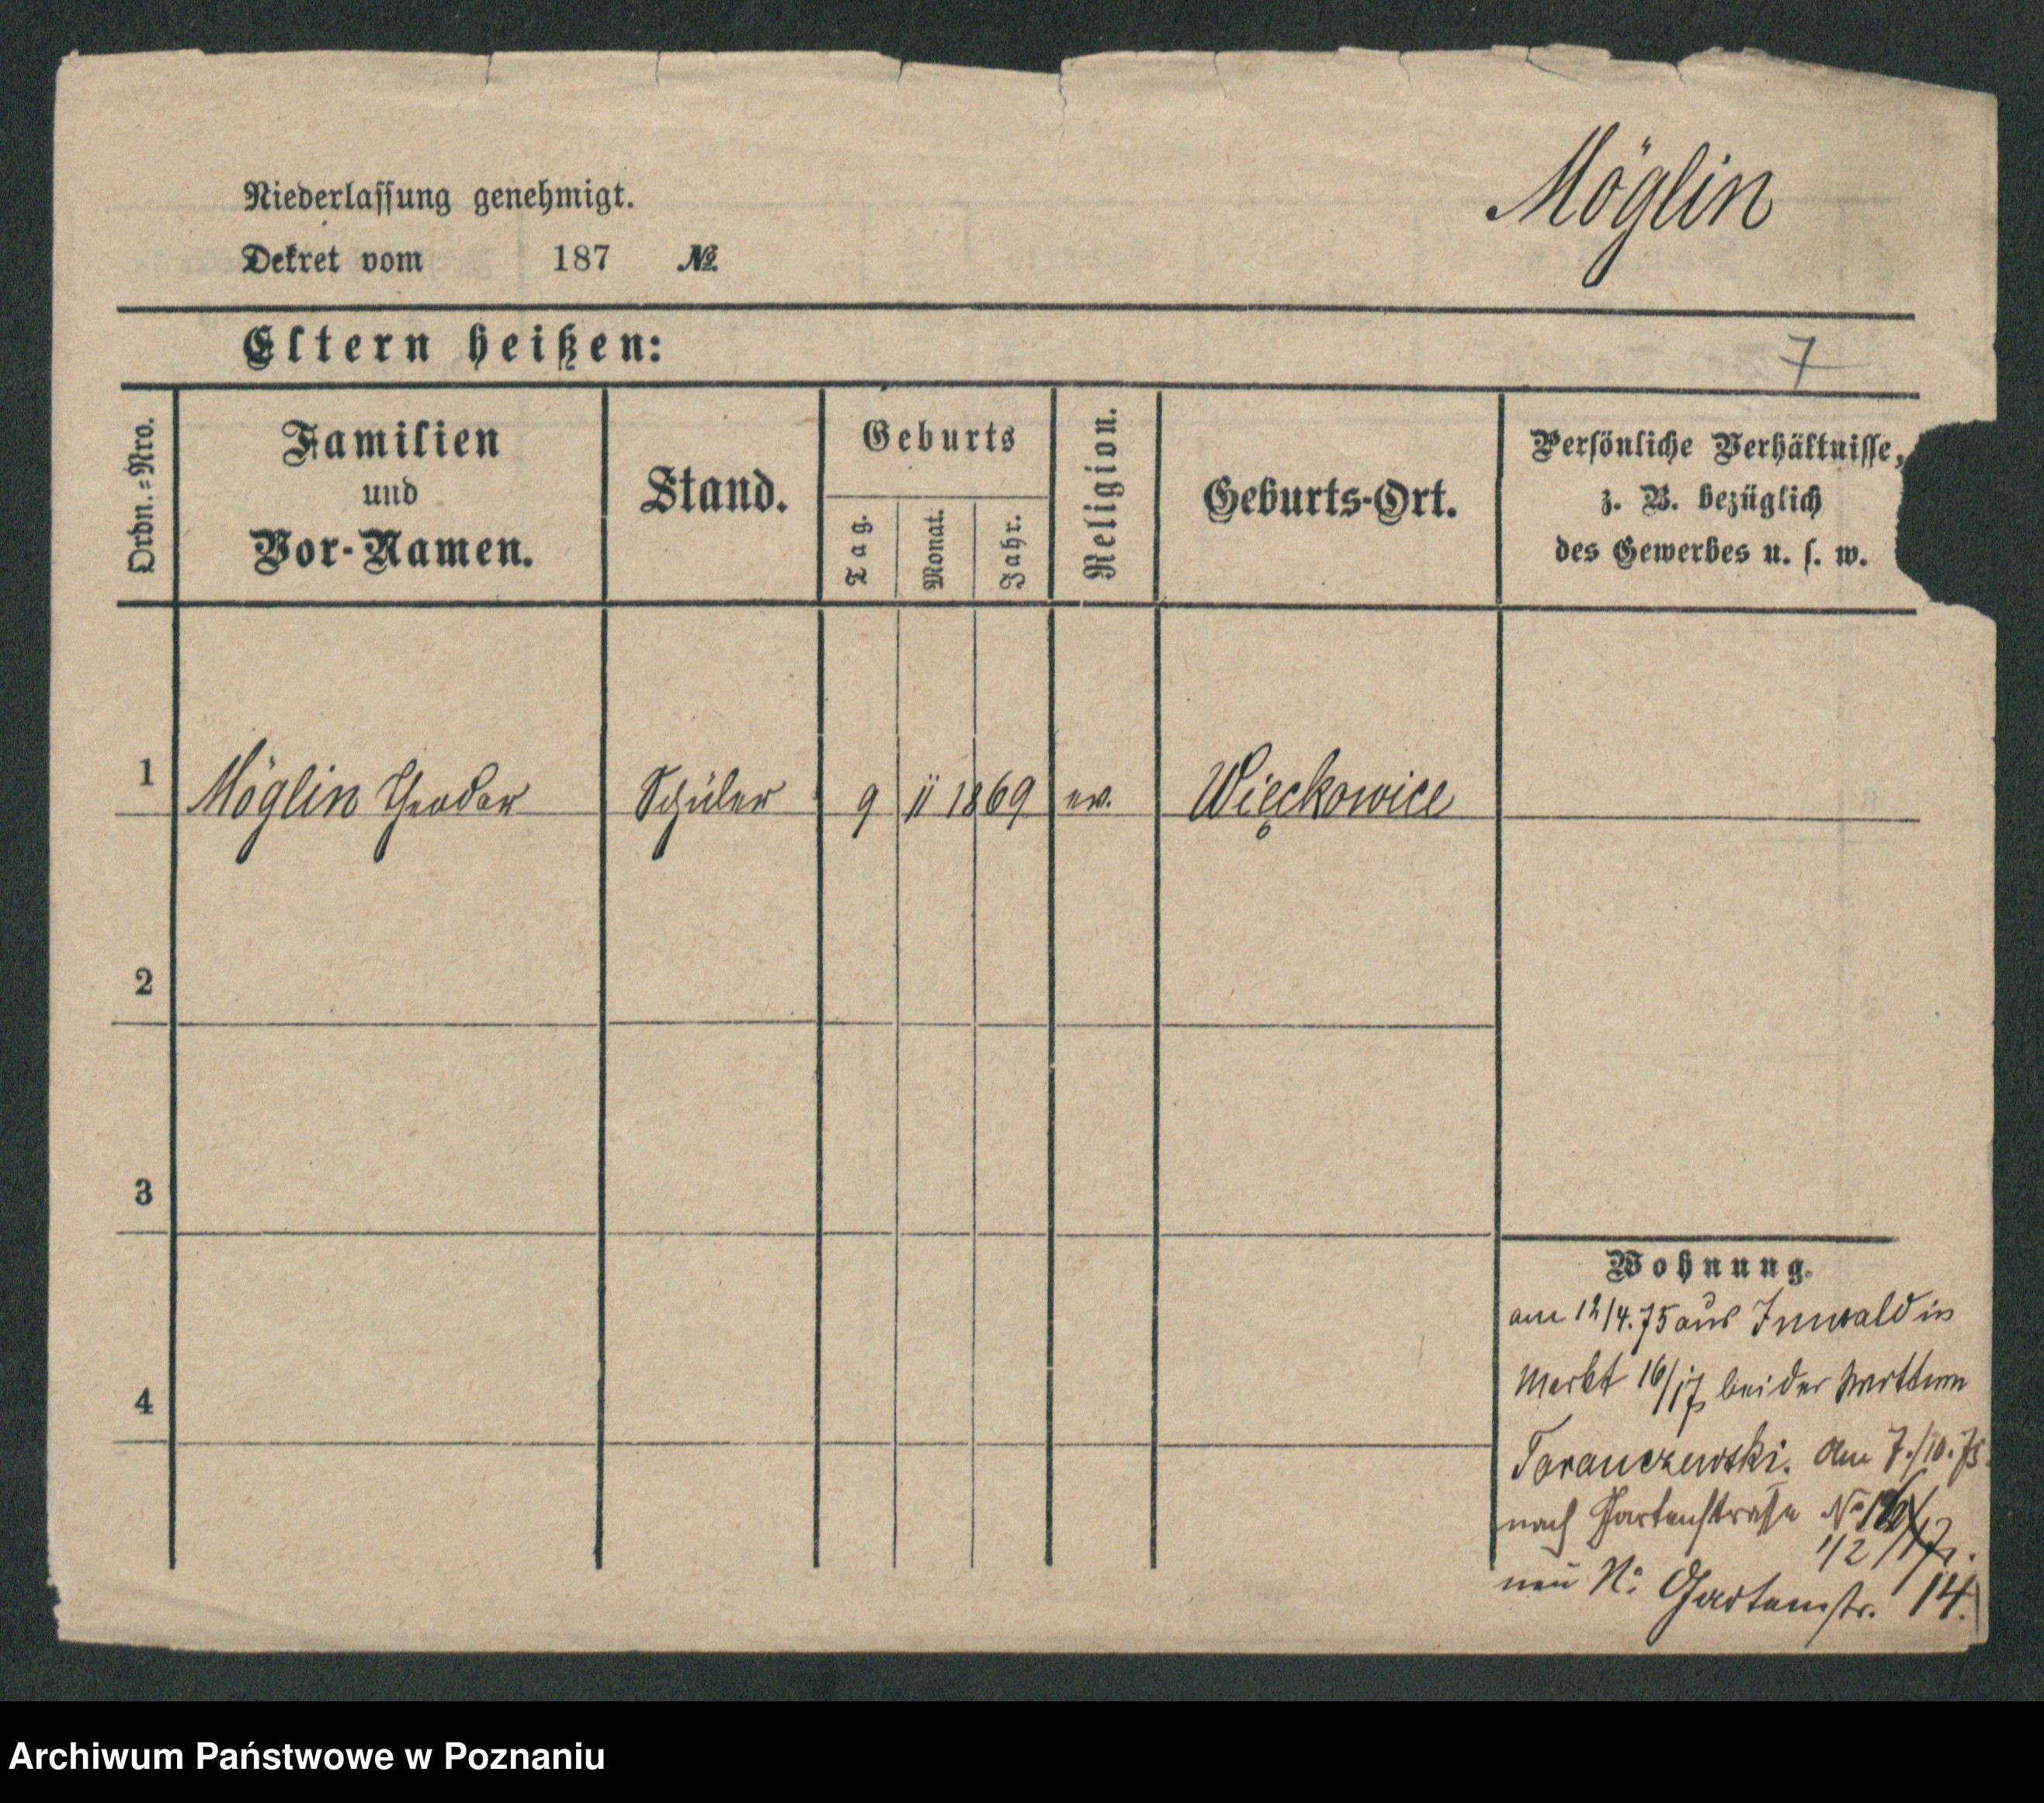 Möglin
Niederlassung genehmigt.
Dekret vom 187 №
Eltern heißen:
7
Ordn.-Nro.
Familien
und
Vor-Namen.
Stand.
Geburts
Tag.
Monat.
Jahr.
Religion.
Geburts-Ort.
Persönliche Verhältnisse,
z. B. bezüglich
des Gewerbes u. s. w.
1 Möglin Theodor Schüler 9 11 1869 ev. Więckowice
2
3
4
Wohnung.
am 12/4.75 aus
Markt 16/17 bei der
Taranczewski. Am 7./10.75
nach Gartenstraße No
1/2
neu N: Gartenstr. 14.
Archiwum Państwowe w Poznaniu